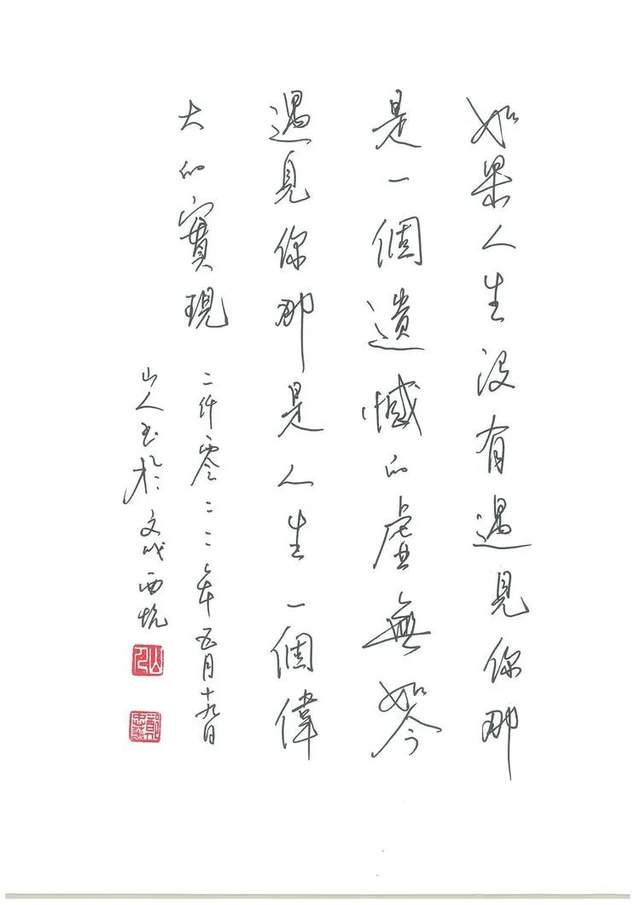 如果人生没有遇見你那
是一個遺憾的虛無如今
遇見你那是人生一個偉
大的實現
二仟零二二年五月十九日
山人书於文成西坑
山人